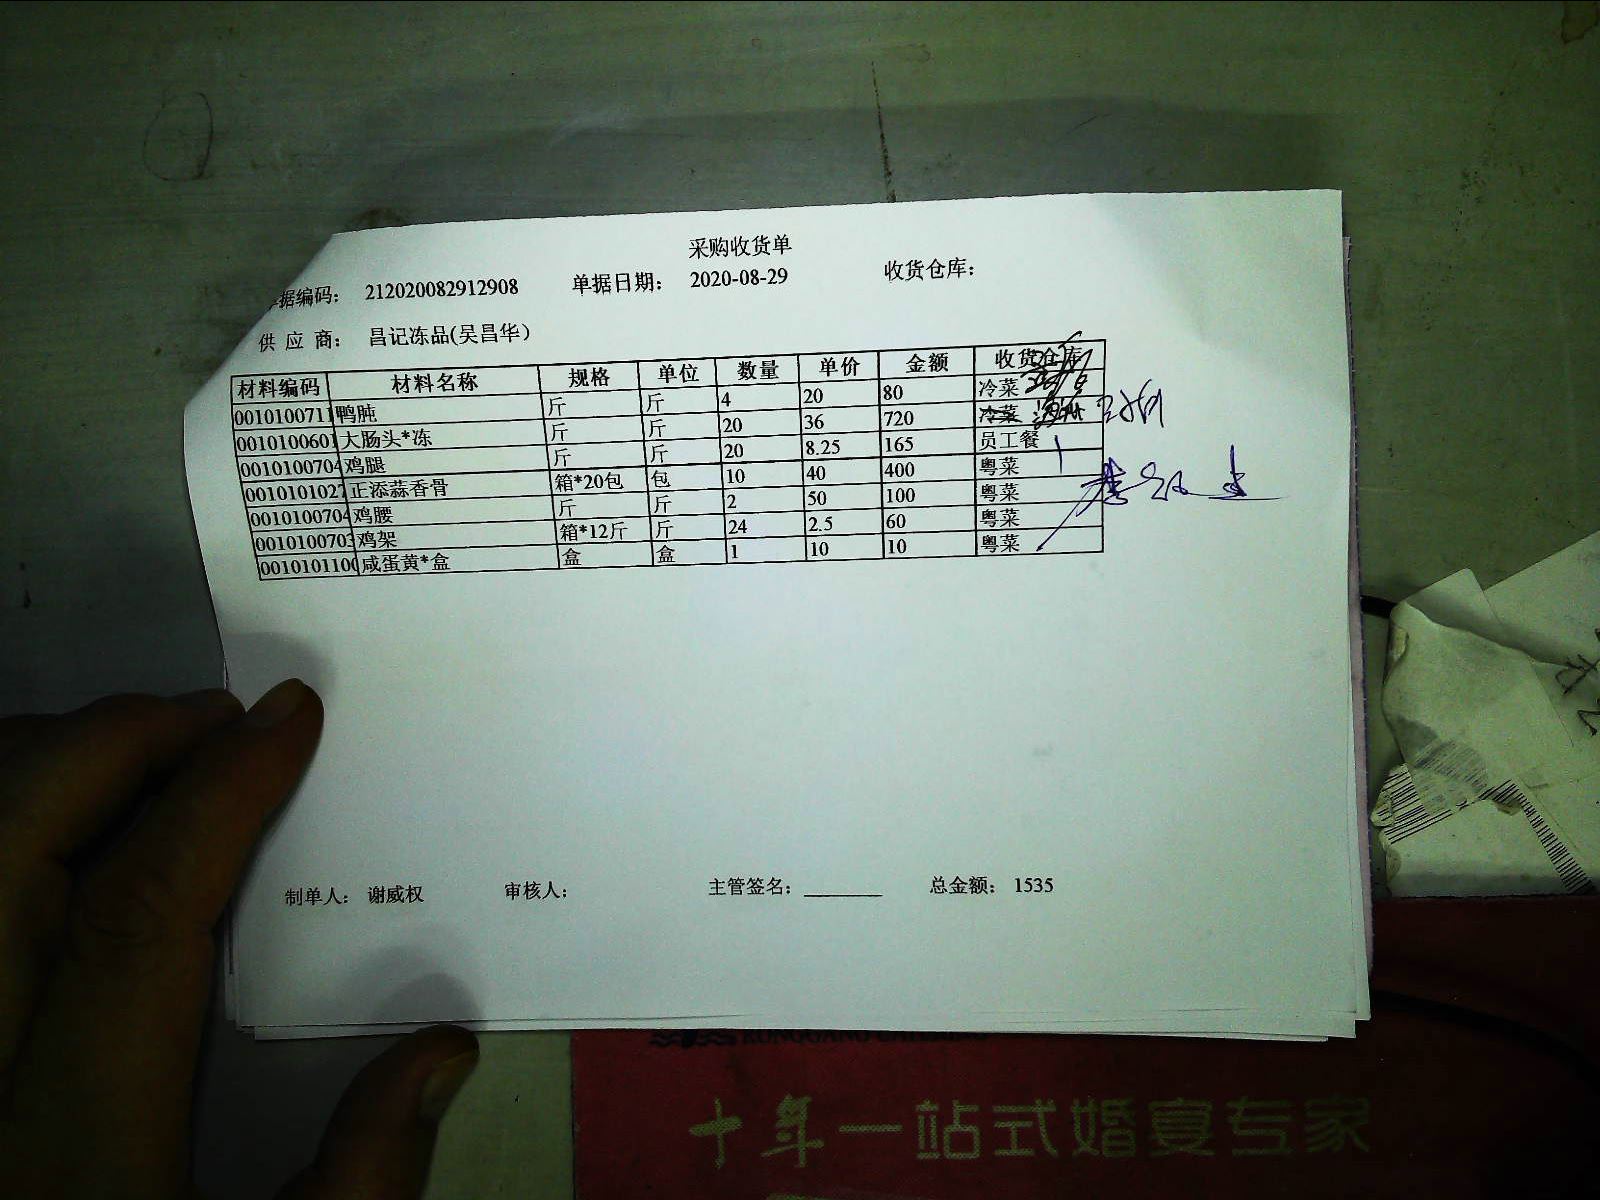 采购收货单
据编码: 212020082912908 单据日期: 2020-08-29 收货仓库:
供 应 商: 昌记冻品(吴昌华)
材料编码 材料名称 规格 单位 数量 单价 金额 收货仓库
0010100711 鸭肫 斤 斤 4 20 80 冷菜
0010100601 大肠头*冻 斤 斤 20 36 720 冷菜
0010100704 鸡腿 斤 斤 20 8.25 165 员工餐
0010101027 正添蒜香骨 箱*20包 包 10 40 400 粤菜
0010100704 鸡腰 斤 斤 2 50 100 粤菜
0010100703 鸡架 箱*12斤 斤 24 2.5 60 粤菜
0010101100 咸蛋黄*盒 盒 盒 1 10 10 粤菜
制单人: 谢威权 审核人: 主管签名: 总金额: 1535
十年一站式婚宴专家